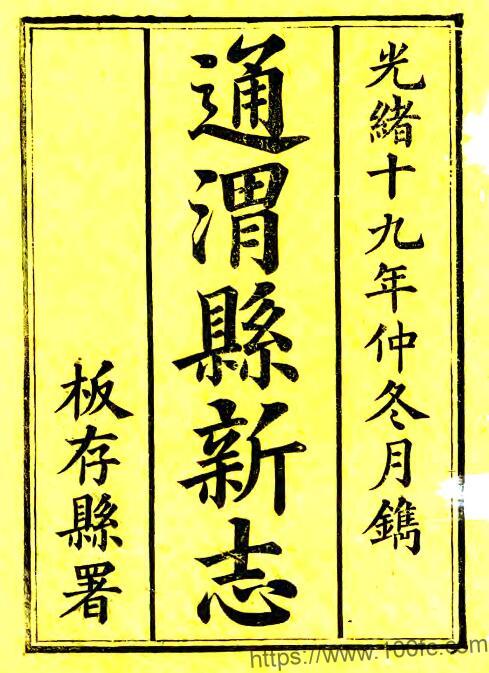 光緒十九年仲冬月鐫
通渭縣新志
板存縣署
https://www.100fc.com